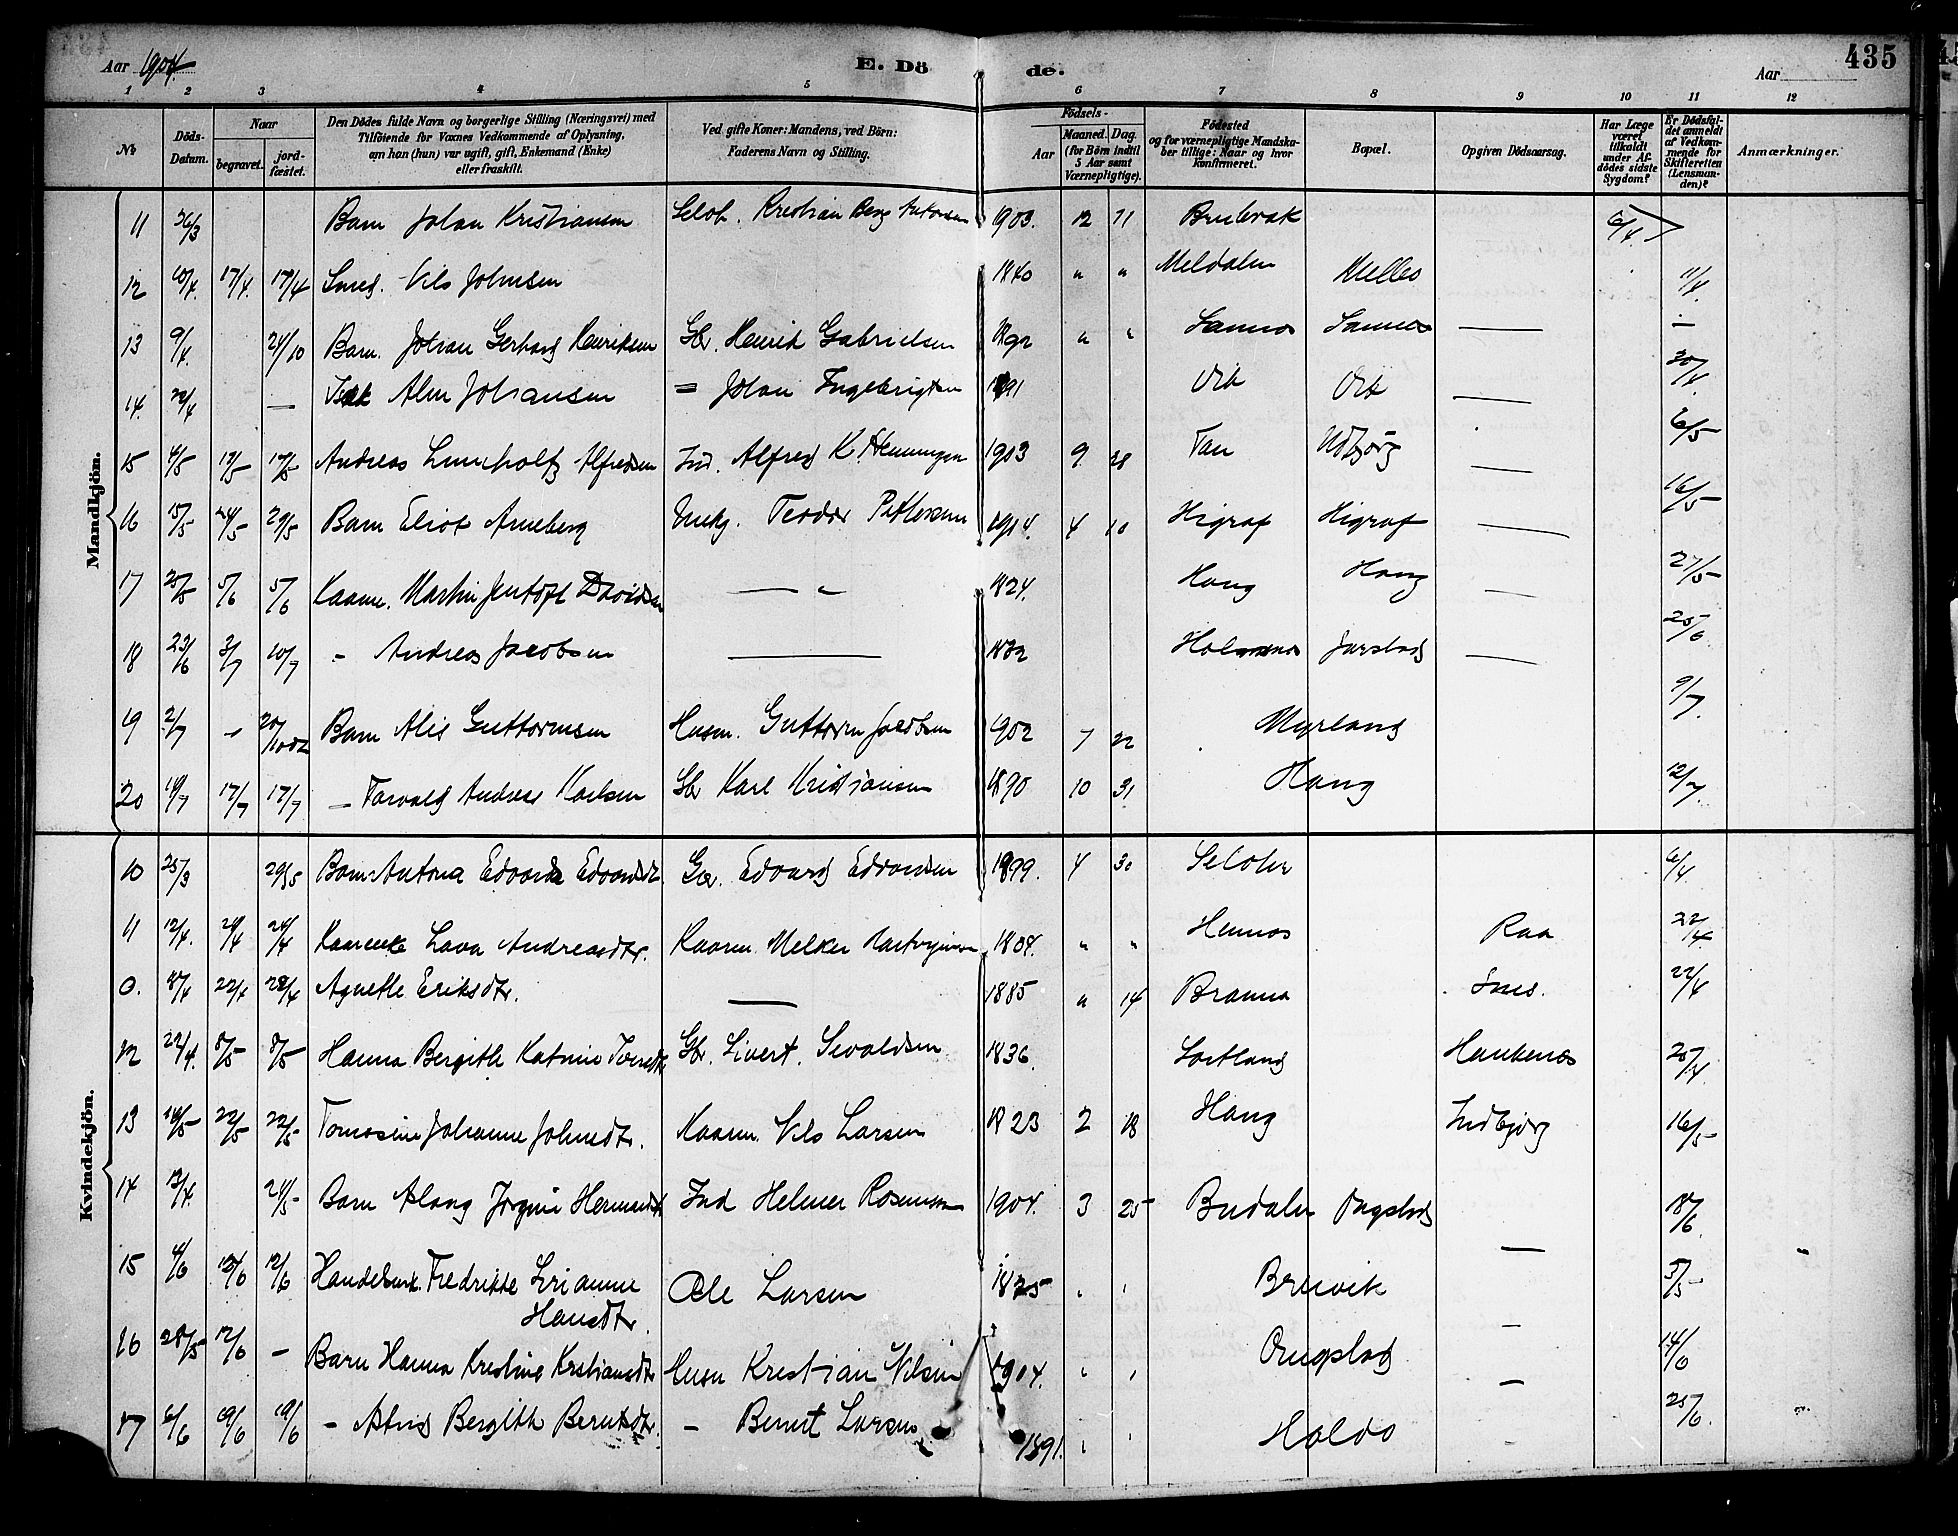 Aar 1904. E. Döde. Aar 435
1 2 3 4 5 6 7 8 9 10 11 12
No. Döds-Datum. Naar begravet. jordfæstet. Den Dödes fulde Navn og borgerlige Stilling (Næringsvei) med Tilföiende for Voxnes Vedkommende af Oplysning, om han (hun) var ugift, gift, Enkemand (Enke) eller fraskilt. Ved gifte Koner: Mandens, ved Börn: Faderens Navn og Stilling. Födsels- Aar Maaned. Dag. (for Börn indtil 5 Aar samt Værnepligtige). Födested og for værnepligtige Mandskaber tillige: Naar og hvor konfirmeret. Bopæl. Opgiven Dödsaarsag. Har Læge været tilkaldt under Afdödes sidste Sygdom? Er Dödsfaldet anmeldt af Vedkommende for Skifteretten (Lensmanden)? Anmærkninger.
Mandkjön.
11 26/3 Barn Johan Kristiansen Kristian Berg 1903. 12 11
12 10/4. 17/4. 17/4 Smed. Nils Johnsen 1840 " " Meldalen 11/4
13 9/4. 24/10 Barn. Johan Gerhard Henriksen Gbr. Henrik Gabrielsen 1892 " " Sannes Sannes — —
14. 22/4 — Alm Johansen = Johan Ingebrigtsen 1891 — 20/4.
15 4/5 17/5 17/5 Andreas Alfredsen Ind. Alfred K. Henningsen 1903 9 28 — 6/5
16 15/5 24/5 29/5 Barn Eliot Arneberg Teodor Pettersen 1904. 4 10 — 16/5
17 25/5 5/6 5/6 Kaarm. Martin Jentoft Davidsen — " 1824. Haug Haug — 27/5
18 23/6 3/7 10/7 - Andreas Jacobsen — 1832 — 25/6
19 2/7 " Barn Alis Guttormsen Husm. Guttorm Jacobsen 1902 7 22 Myrland 9/7.
20 10/7 17/7 17/7 — Torvald Andreas Karlsen Gbr Karl Kristiansen 1890 10 31 Haug 12/7.
Kvindekjön.
10 25/3 29/5 Barn Antona Edvarda Edvardsdtr. Gbr. Edvard Edvardsen 1899. 4 30 6/4.
11 12/4. 24/4 24/4 Andreasdtr. Kaarm. Melker Hartvigsen 1804. " " Hennes 22/4
0. 18/4 22/4 22/4 Agnethe Eriksdtr. — 1885 " 14 22/4
12 22/4. 8/5 8/5 Hanna Bergithe Katrine Gbr. Sivert. Sivaldsen 1836 Sortland Haukenes 25/4.
13 14/5 22/5 22/5 Tomasine Johanne Johnsdtr. Kaarm. Nils Larsen 1823 2 18 Haug Indbjörg 16/5
14 13/4 24/5 Barn Aslaug Jörgine Hermansdtr Ind Helmer Rosenvoen 1904. 3 25 18/6.
15 4/6 12/6 12/6 Fredrikke Hansdtr. Ole Larsen 1825 " " — Bresvik 3/5
16 28/5 12/6 — Barn Hanna Kristine Kristiansdtr Husm Kristian Nilsen 1904. " " — 14/6
17 6/6 19/6 19/6 — Astrid Bergith Berntsdtr. — Bernt Larsen 1891. " " — Holdö 25/6.